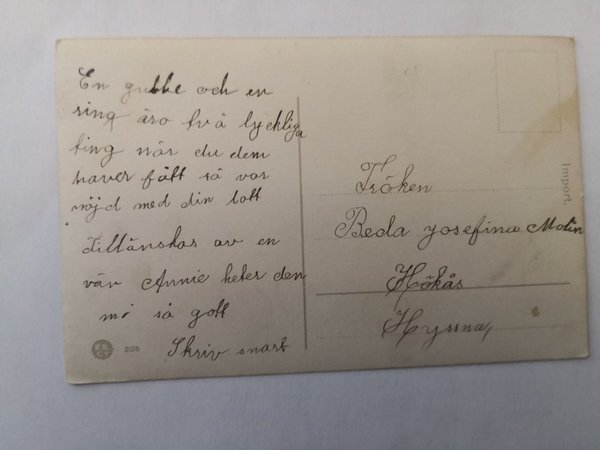 En gubbe och en
ring äro två lyckliga
ting när du dem
haver fått så var
nöjd med din lott
Tillönskas av en
vän Annie heter den
må så gott
Skriv snart
205
Import.
Fröken
Beda Josefina Molin
Hökås
Hyssna,